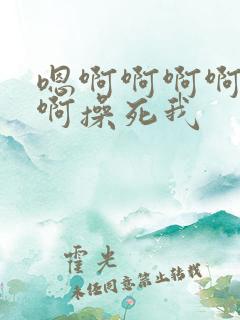 嗯啊啊啊啊
啊操死我
霍光
未经同意禁止转载